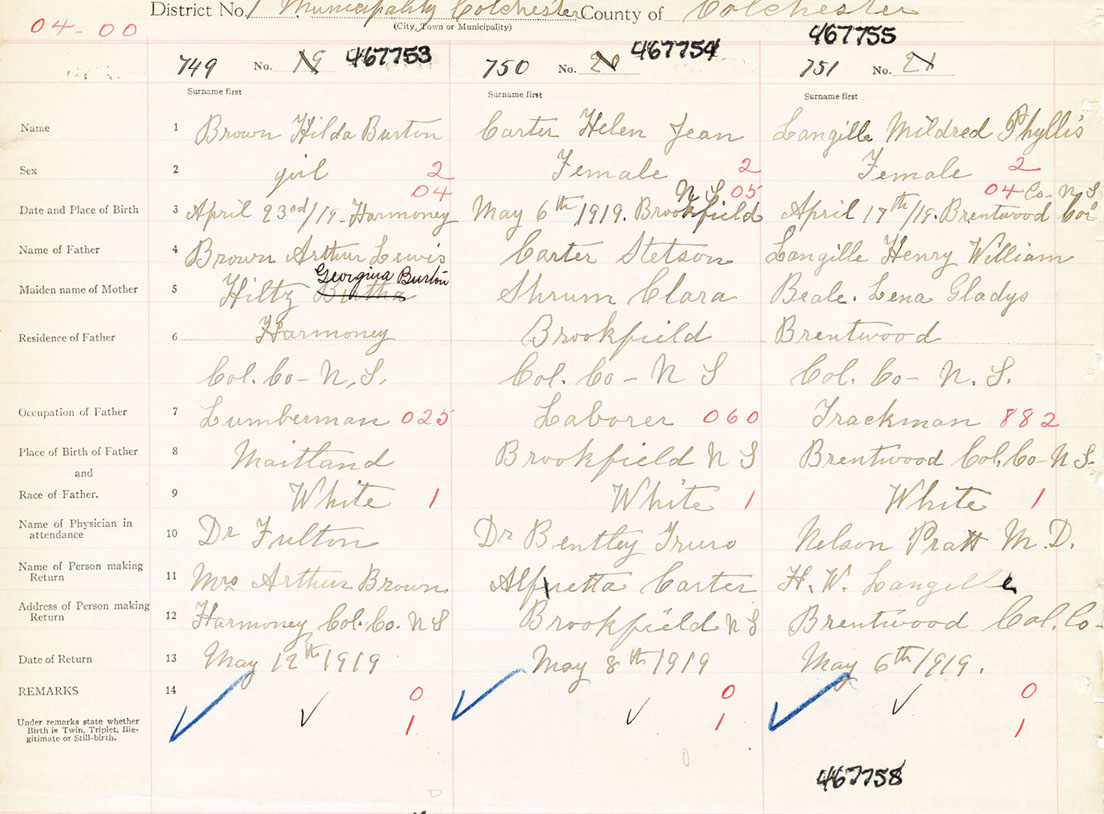 District No. 1 Municipality Colchester County of Colchester
(City, Town or Municipality)
04-00
749 No. 19 467753 750 No. 20 467754 751 No. 21 467755
Surname first Surname first Surname first
Name 1 Brown Hilda Burton Carter Helen Jean Langille Mildred Phyllis
Sex 2 girl 2 Female 2 Female 2
04 N S 05 04 Co- N S
Date and Place of Birth 3 April 23rd/19-Harmoney May 6th 1919. Brookfield April 17th/19. Brentwood Col
Name of Father 4 Brown Arthur Lewis Carter Stetson Langille Henry William
Georgina Burton
Maiden name of Mother 5 Hiltz Bertha Shrum Clara Beale. Lena Gladys
Residence of Father 6 Harmoney Brookfield Brentwood
Col. Co- N. S. Col. Co- N S Col. Co- N. S.
Occupation of Father 7 Lumberman 025 Laborer 060 Trackman 882
Place of Birth of Father 8 Maitland Brookfield N S Brentwood Col. Co- N S.
and
Race of Father. 9 White 1 White 1 White 1
Name of Physician in
attendance 10 Dr Fulton Dr Bentley Truro Nelson Pratt M. D.
Name of Person making
Return 11 Mrs Arthur Brown Alfretta Carter H. W. Langille
Address of Person making
Return 12 Harmoney Col. Co. N S Brookfield N S Brentwood Col. Co-
Date of Return 13 May 12th 1919 May 8th 1919 May 6th 1919.
REMARKS 14 0 0 0
Under remarks state whether
Birth is Twin, Triplet, Ille-
gitimate or Still-birth.
1 1 1
467758